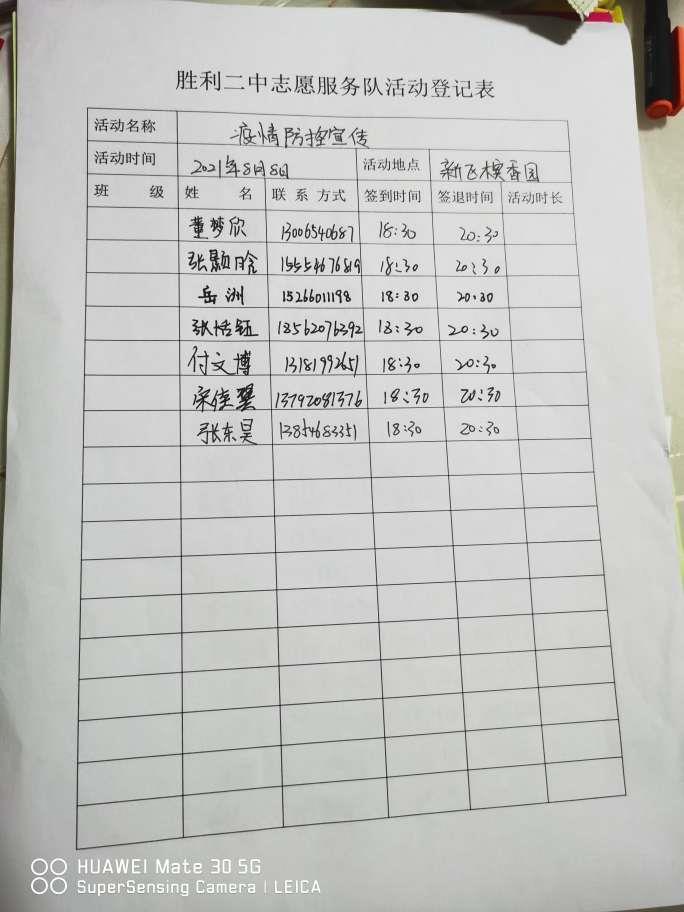 胜利二中志愿服务队活动登记表
活动名称 疫情防控宣传
活动时间 2021年8月8日 活动地点 新飞槟香园
班 级 姓 名 联 系 方式 签到时间 签退时间 活动时长
董梦欣 13006540687 18:30 20:30
张颢晗 15554676819 18:30 20:30
岳洲 15266011198 18:30 20:30
张恬钰 18562076392 18:30 20:30
付文博 13181992651 18:30 20:30
宋佳翼 13792081376 18:30 20:30
张东昊 13854683351 18:30 20:30
HUAWEI Mate 30 5G
SuperSensing Camera | LEICA